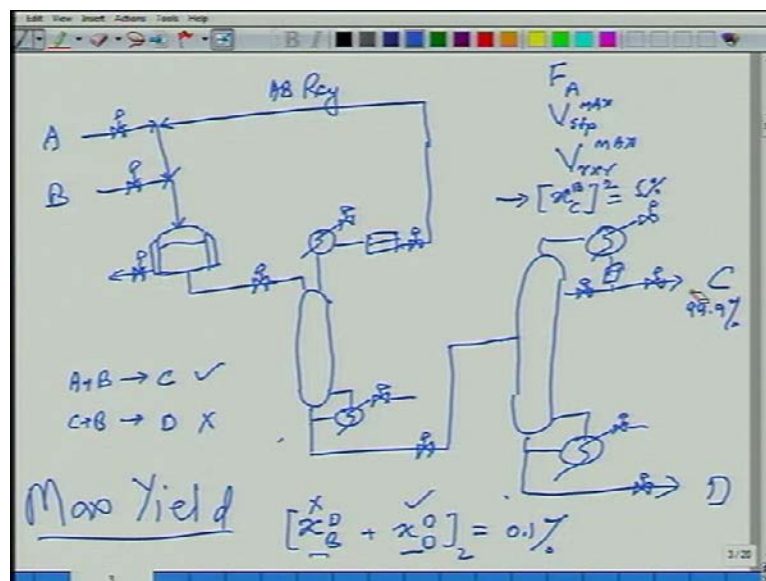 Edit View Insert Actions Tools Help
B I
AB Rcy
A
B
F_A
V_stp^MAX
V_rxr^MAX
→ [x_C^B]^2 = 5%
C
99.9%
A+B → C ✓
C+B → D X
D
Max Yield
X ✓
[x_B^D + x_D^D]_2 = 0.1%
3/20